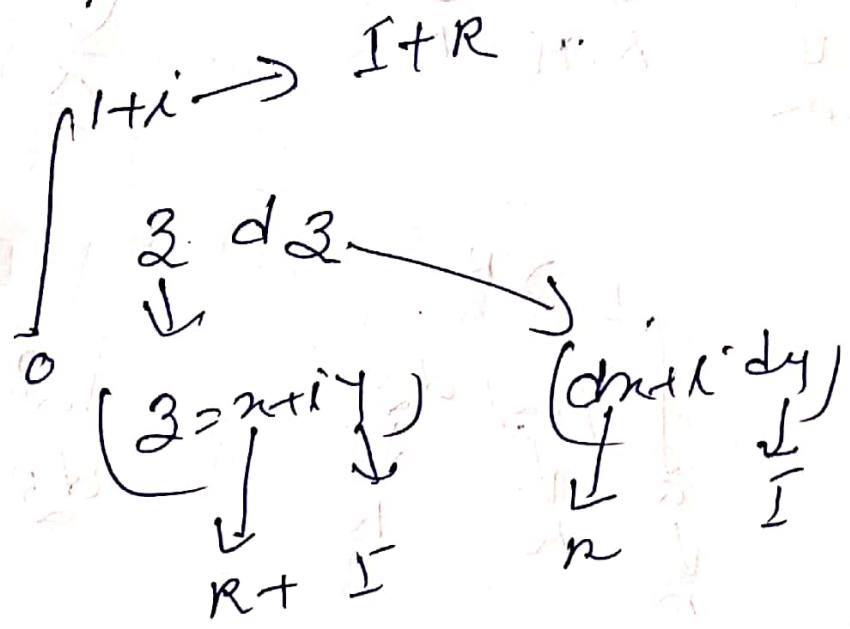 1+i → I+R
∫
z dz
0
(z=x+iy) (dx+i dy)
R+ I R I